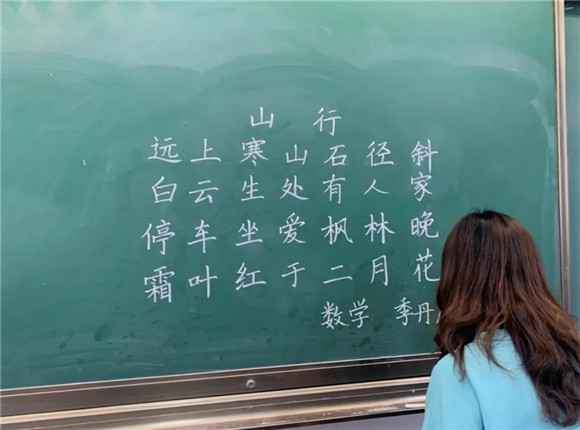 山行
远上寒山石径斜
白云生处有人家
停车坐爱枫林晚
霜叶红于二月花
数学 季丹